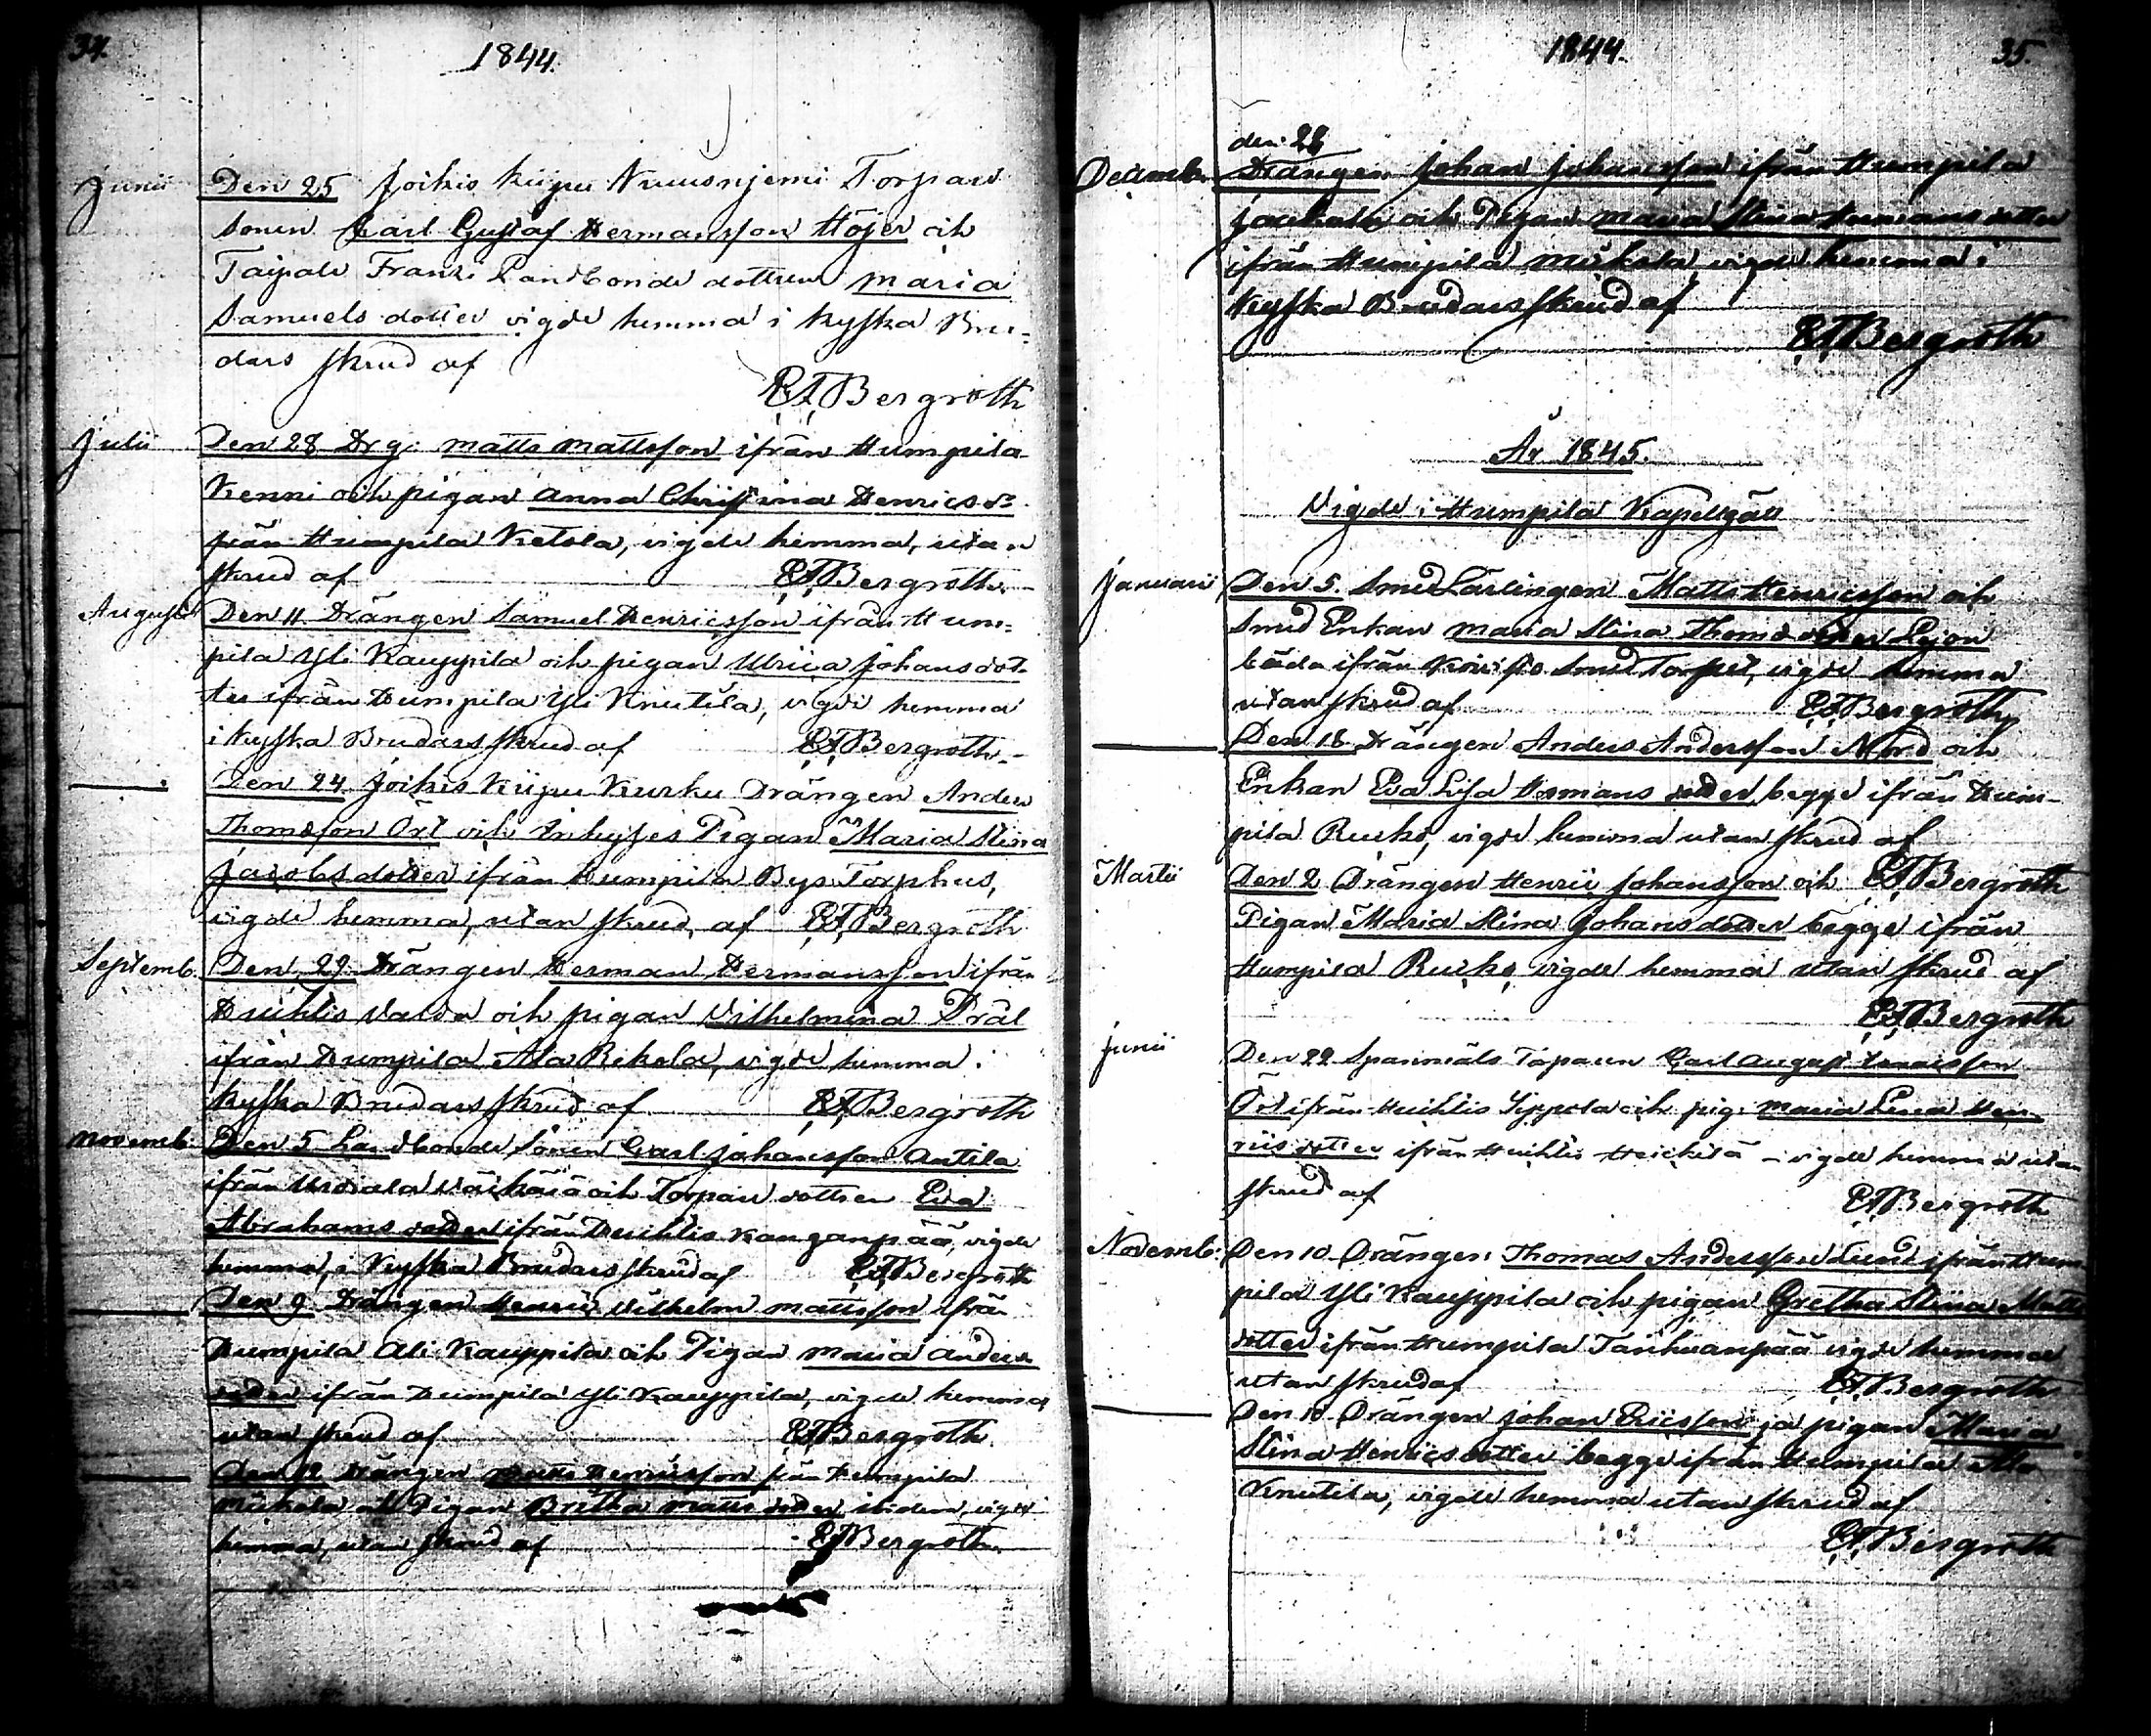 34.
1844.
Junii
Den 25 Joikis Kiipu Nuusnjemi Torpare
sonen Carl Gustaf Hermansson Höjer och
Taipale Franki Landbonde dottren Maria
Samuels dotter vigde hemma i Kyska Bru=
dars skrud af
EABergroth
Julii
Den 28 Drg: Matts Mattsson ifrån Humpila
Kenni och pigan Anna Christina Henricsdr
från Humpila Ketola, vigde hemma, utan
skrud af EABergroth.
August
Den 11 Drängen Samuel Henricsson ifrån Hum=
pila Yli Kauppila och pigan Ulrica Johansdot
ter ifrån Humpila Yli Knutila, vigde hemma
i kyska Brudars skrud af EABergroth.
Den 24 Joikis Kiipu Kurku Drängen Anders
Thomasson Ört och Inhyses Pigan Maria Stina
Jacobs dotter ifrån Humpila Bys Torphus,
vigde hemma, utan skrud, af EABergroth
Septemb.
Den 29. Drängen Herman Hermansson ifrån
Huihtis Valda och pigan Vilhelmina Präl
ifrån Humpila Ala Rekola, vigde hemma i
Kyska Brudars skrud af EABergroth
Novemb.
Den 5 Landbonde Sonen Carl Johansson Antila
ifrån Urdiala och Torpare dottren Eva
Abrahams dotter ifrån Huihtis Kanganpää, vigde
hemma, i Kyska Brudars skrud af EABergroth
Den 9. Drängen Henric Vilhelm Mattsson ifrån
Humpila Ali Kauppila och Pigan Maria Anders
dotter ifrån Humpila Yli Kauppila, vigde hemma
utan skrud af EABergroth.
Den 12 Drängen Matts Henricsson från Humpila
Mickola och Pigan Britha Matts dotter ibidem, vigde
hemma, utan skrud af EABergroth
1844.
35.
den 26
Decemb.
Drängen Johan Johansson ifrån Humpila
Jaakola och Pigan Maria Stina Hermans dotter
ifrån Humpila Mickola, vigde hemma i
Kyska Brudars skrud af
EABergroth
År 1845.
Vigde i Humpila Kapellgäll
Januari
Den 5. Smed Lärlingen Matts Henricsson och
Smed Enkan Maria Stina Thomæ dotter Lejon
båda ifrån Koivisto Smed Torpet, vigde hemma
utan skrud af EABergroth
Den 18 Drängen Anders Andersson Nord och
Enkan Eva Lisa Hermans dotter, begge ifrån Hum-
pila Ruiko, vigde hemma utan skrud af
Martii
Den 2 Drängen Henric Johansson och EABergroth
Pigan Maria Stina Johansdotter begge ifrån
Humpila Ruiko, vigde hemma utan skrud af
EABergroth
Junii
Den 22 Spannmåls Torparen Carl August Isaacsson
Ört ifrån Huihtis och pig: Maria Lena Hen
rics dotter ifrån Huihtis Heickilä - vigde hemma utan
skrud af EABergroth
Novemb:
Den 10 Drängen Thomas Andersson Lund ifrån Hum
pila Yli Kauppila och pigan Gretha Stina Matts
dotter ifrån Humpila Tanhuanpää vigde hemma
utan skrud af EABergroth
Den 18 Drängen Johan Ericsson ja pigan Maria
Stina Henricsdotter begge ifrån Humpila Ala
Knutila, vigde hemma utan skrud af
EABergroth